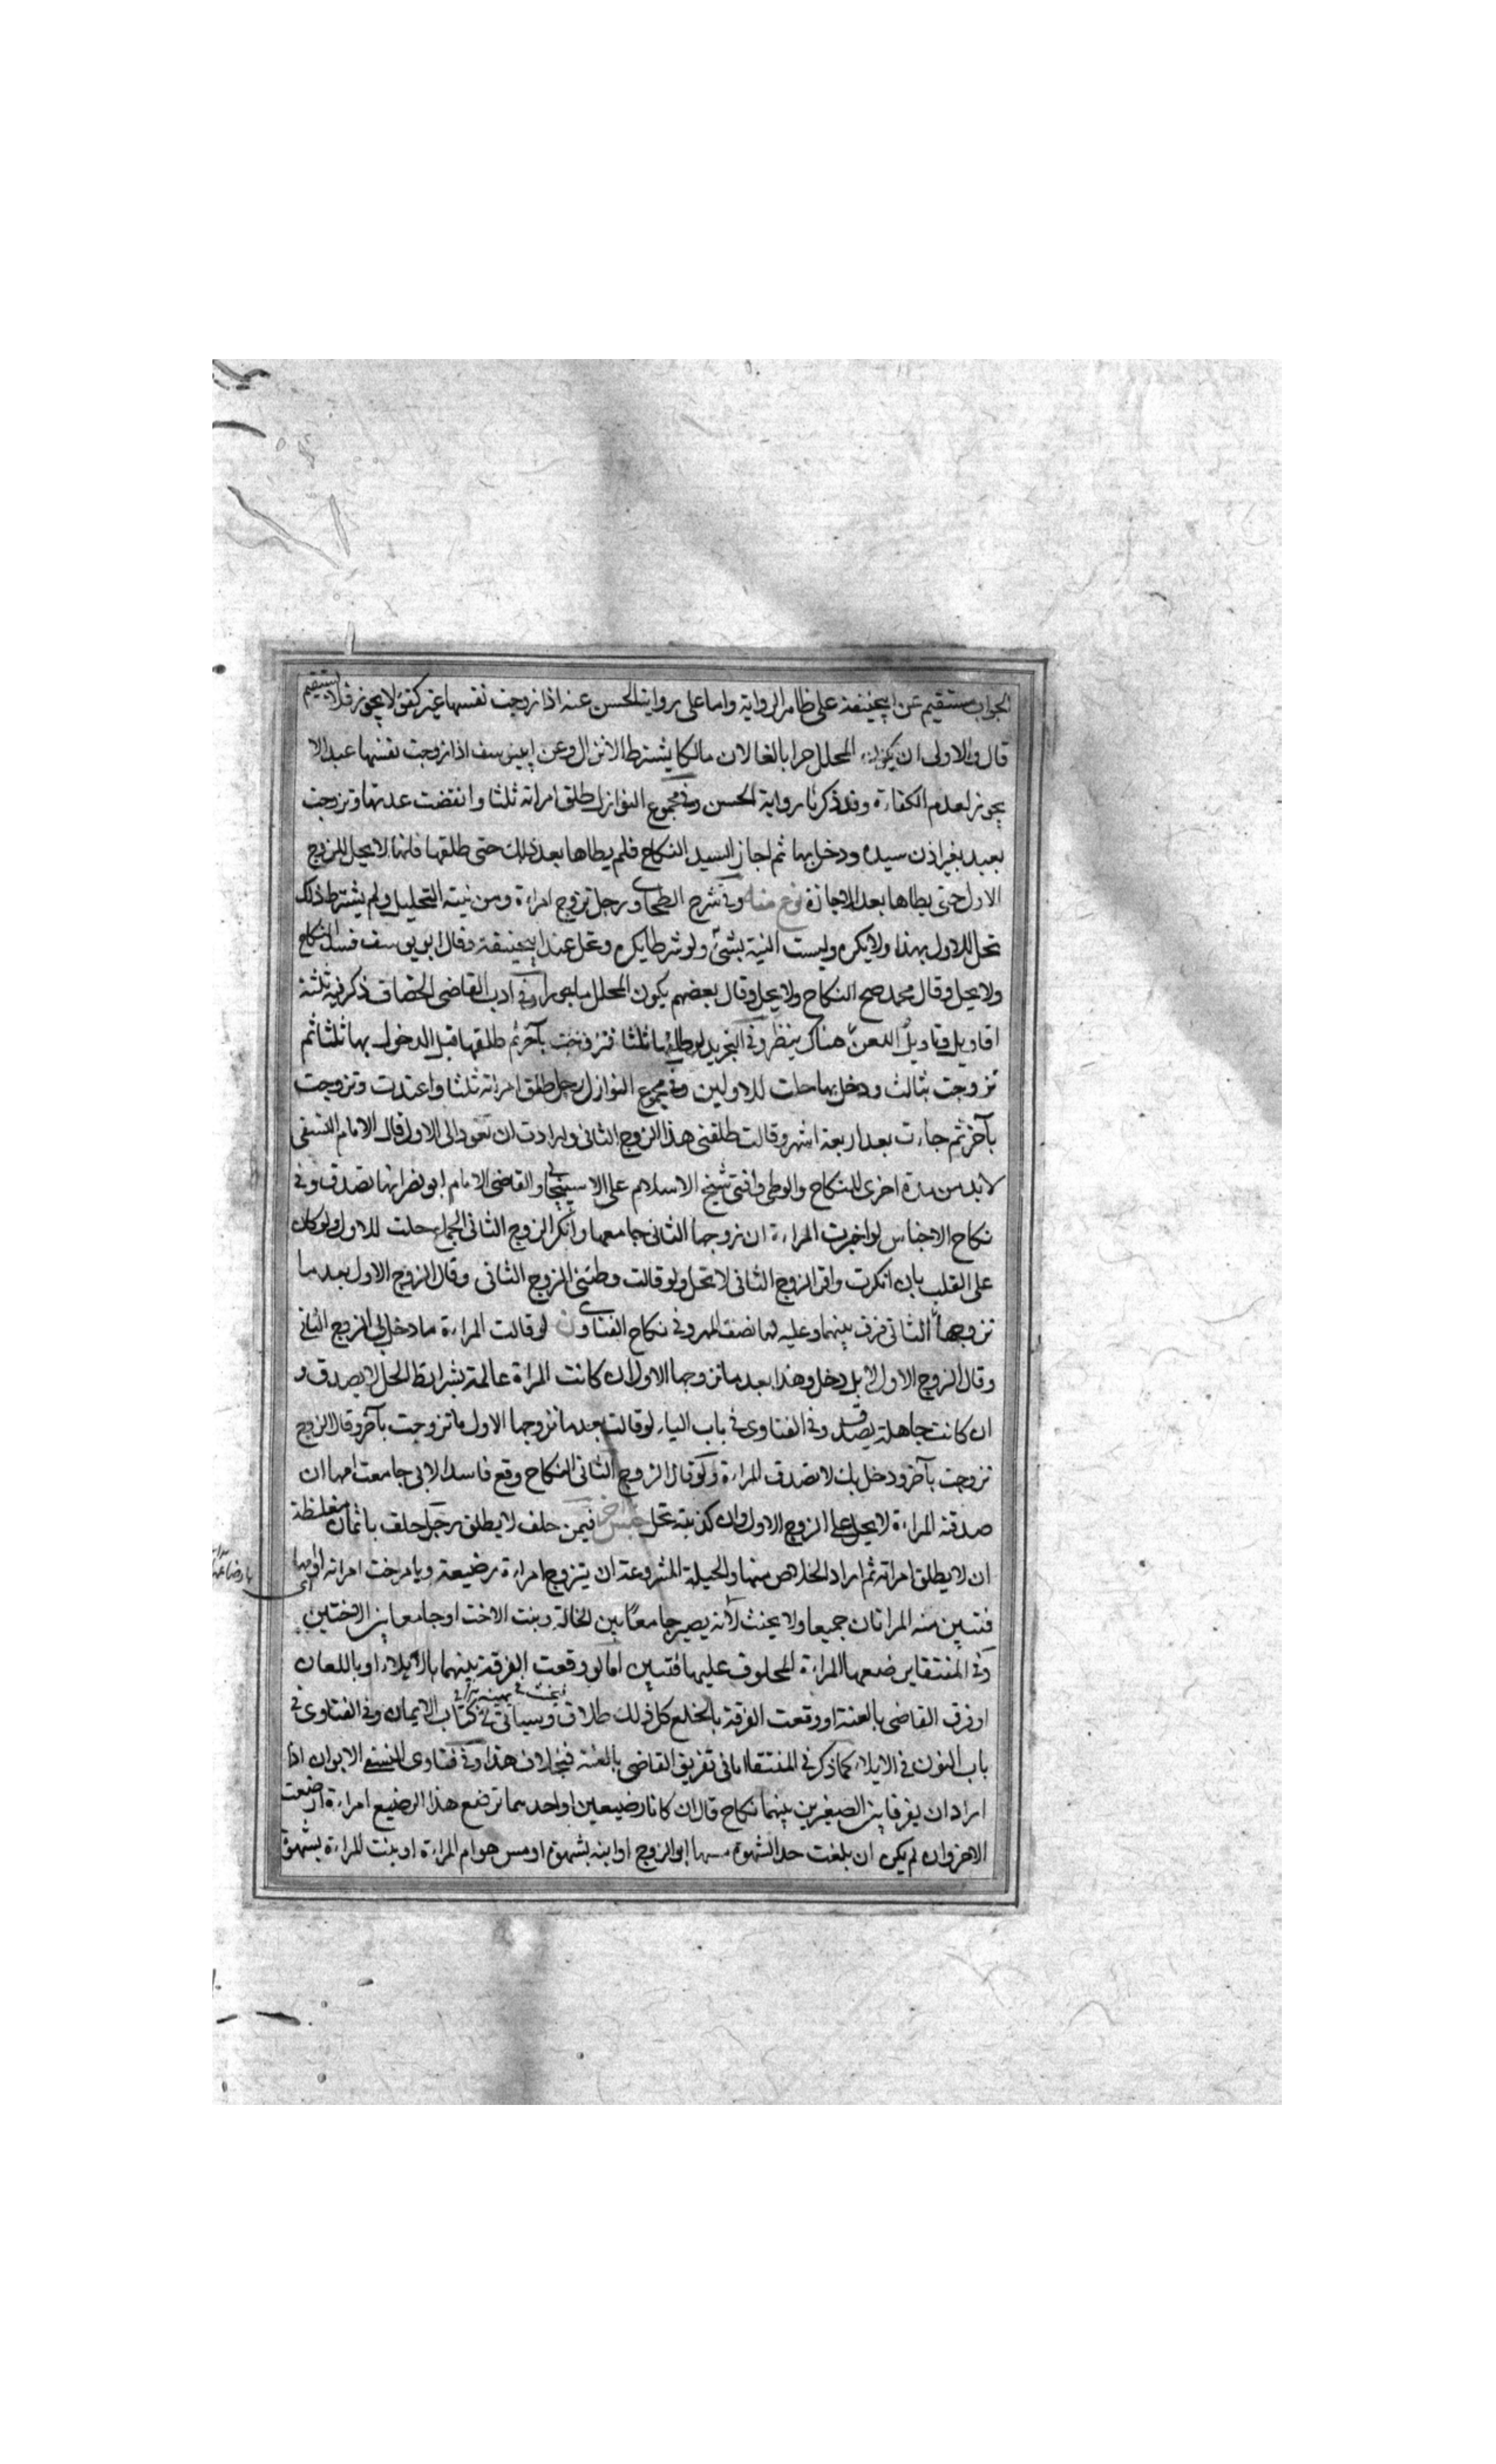 الجواب مستقيم عن ابيحنيفة على ظاهر الرواية واما على رواية الحسن عنه اذا زوجت نفسها غير كفؤ لا يجوز فلا يستقيم
قال والاولى ان يكون المحلل حرا بالغا لان مالكا يشترط الانزال وعن ابييوسف اذا زوجت نفسها عبدا لا
يجوز لعدم الكفاءة وقد ذكرنا رواية الحسن وفي مجموع النوازل طلق امراته ثلثا وانقضت عدتها وتزوجت
بعبد بغير اذن سيده ودخل بها ثم اجاز السيد النكاح فلم يطاها بعد ذلك حتى طلقها فانها لا يحل للزوج
الاول حتى يطاها بعد الاجازة نوع منه وفي شرح الطحاوي رجل تزوج امراءة ومن نيته التحليل ولم يشترط ذلك
تحل للاول بهذا ولا يكره وليست النية بشئ ولو شرطا يكره وتحل عند ابيحنيفة وقال ابو يوسف فسد النكاح
ولا يحل وقال محمد صح النكاح ولا يحل وقال بعضهم يكون المحلل ماجورا وفي ادب القاضي الخصاف ذكر فيه ثلثة
اقاويل وتاويل اللعن هناك ينظر وفي التجريد لو طلقها ثلثا فتزوجت بآخر ثم طلقها قبل الدخول بها ثلثا ثم
تزوجت بثالث ودخل بها حلت للاولين وفي مجموع النوازل رجل طلق امراته ثلثا واعتدت وتزوجت
بآخر ثم جاءت بعد اربعة اشهر وقالت طلقني هذا الزوج الثاني وارادت ان تعود الى الاول قال الامام النسفي
لابد من مدة اخرى للنكاح والوطى وافتى شيخ الاسلام على الاسبيجابي والقاضي الامام ابو نصر انها تصدق وفي
نكاح الاجناس لو اخبرت المراءة ان زوجها الثاني جامعها وانكر الزوج الثاني الجماع حلت للاول ولو كان
على القلب بان انكرت واقر الزوج الثاني لا تحل ولو قالت وطئني الزوج الثاني وقال الزوج الاول بعد ما
تزوجها الثاني فرق بينهما وعليه لها نصف المهر وفي نكاح الفتاوى ن لو قالت المراءة ما دخل بي الزوج الثاني
وقال الزوج الاول لا بل دخل وهذا بعد ما تزوجها الاول ان كانت المراة عالمة بشرائط الحل لا يصدق و
ان كانت جاهلة يصدق وفي الفتاوى في باب الياء لو قالت بعد ما تزوجها الاول ما تزوجت بآخر وقال الزوج
تزوجت بآخر ودخل بك لا تصدق المراءة ولو قال الزوج الثاني النكاح وقع فاسدا لاني جامعت امها ان
صدقته المراءة لا يحل على الزوج الاول وان كذبته تحل جنس آخر فيمن حلف لا يطلق رجل حلف بايمان مغلظة
ان لا يطلق امراته ثم اراد الخلاص منها والحيلة المشروعة ان يتزوج امراءة رضيعة ويامر اخت امراته او امها
فتبين منه المراتان جميعا ولا يحنث لانه يصير جامعا بين الخالة وبنت الاخت او جامعا بين الاختين
وفي المنتقا يرضعها المراءة المحلوف عليها فتبين اما لو وقعت الفرقة بينهما بالايلاء او باللعان
او فرق القاضي بالعنة او وقعت الفرقة بالخلع كل ذلك طلاق وسياتي في كتاب الايمان وفي الفتاوى في
باب النون في الايلاء كما ذكر في المنتقا اما في تفريق القاضي بالعنة فبخلاف هذا وفي فتاوى النسفي الابوان اذا
ارادا ان يفرقا بين الصغيرين بينهما نكاح قال ان كانا رضيعين او احدهما ترضع هذا الرضيع امراءة ارضعت
الاخر وان لم يكن ان بلغت حد الشهوة مسها ابو الزوج او ابنه بشهوة او مس هو ام المراءة او بنت المراءة بشهوة